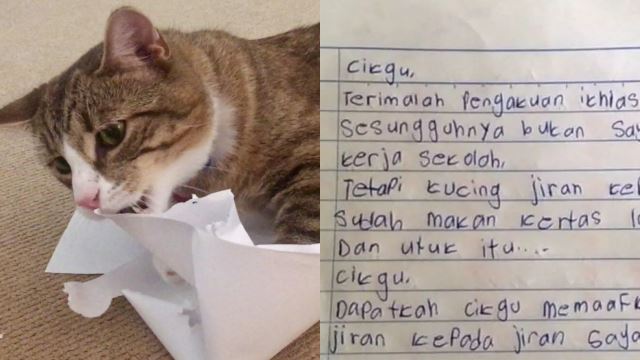 Cikgu,
Terimalah Pengakuan ikhlas
Sesungguhnya bukan
kerja sekolah,
Tetapi kucing jiran
Sudah makan kertas
Dan utuk itu....
Cikgu,
Dapatkah cikgu memaafk
jiran kepada jiran saya